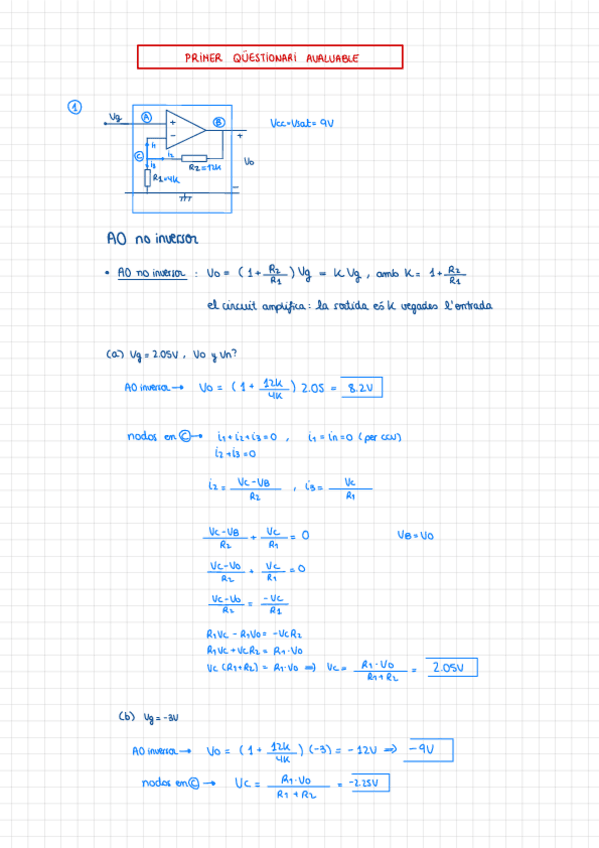 PRIMER QÜESTIONARI AVALUABLE
1
Vg
A
+
-
B
+
Vcc=Vsat= 9V
i1
C
i2
R2=12K
Vo
i3
R1=4K
-
AO no inversor
• AO no inversor : Vo = (1+ R2/R1) Vg = K Vg , amb K= 1+ R2/R1
el circuit amplifica: la sortida és K vegades l'entrada
(a) Vg = 2.05V , Vo y Vn?
AO inversor → Vo = (1 + 12K/4K) 2.05 = 8.2V
nodos en C → i1+i2+i3=0 , i1=in=0 (per ccv)
i2+i3=0
i2= Vc-VB/R2 , i3= Vc/R1
Vc-VB/R2 + Vc/R1 = 0 VB=VO
Vc-Vo/R2 + Vc/R1 = 0
Vc-Vo/R2 = -Vc/R1
R1Vc - R1Vo = -VcR2
R1Vc + VcR2 = R1·Vo
Vc (R1+R2) = R1·Vo ⇒ Vc = R1·Vo/R1+R2 = 2.05V
(b) Vg = -3V
AO inversor → Vo = (1 + 12K/4K) (-3) = -12V ⇒ -9V
nodos en C → Vc = R1·Vo/R1+R2 = -2.25V